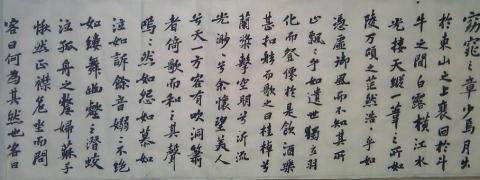 窈窕之章少焉月出
於東山之上裵回於斗
牛之間白露橫江水
光接天縱一葦之所如
陵万頃之茫然浩々乎如
憑虛御風而不知其所
止飄々乎如遺世獨立羽
化而登僊於是飲酒樂
甚扣舷而歌之曰桂棹兮
蘭槳擊空明兮泝流
光渺々兮余懷望美人
兮天一方客有吹洞簫
者倚歌而和之其聲
嗚々然如怨如慕如
泣如訴餘音嫋々不絶
如縷舞幽壑之潛蛟
泣孤舟之嫠婦蘇子
愀然正襟危坐而問
客曰何為其然也客曰